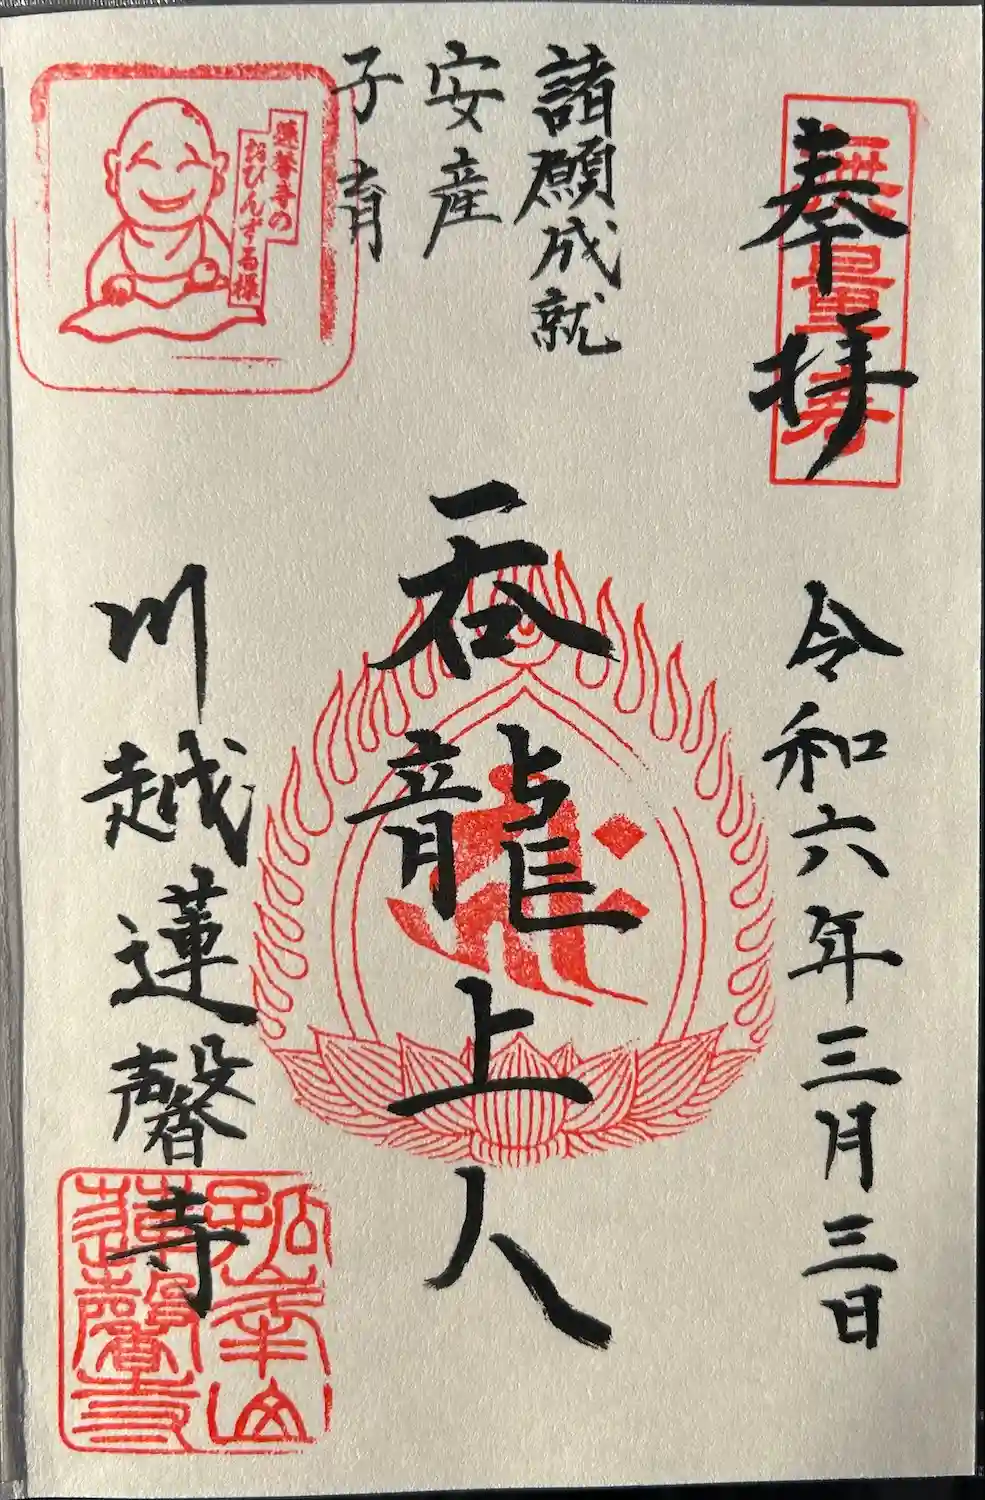 奉拝
無量寿
令和六年三月三日
諸願成就
安産
子育
呑龍上人
川越蓮馨寺
蓮馨寺の
おびんずる様
孤峯山
蓮馨寺